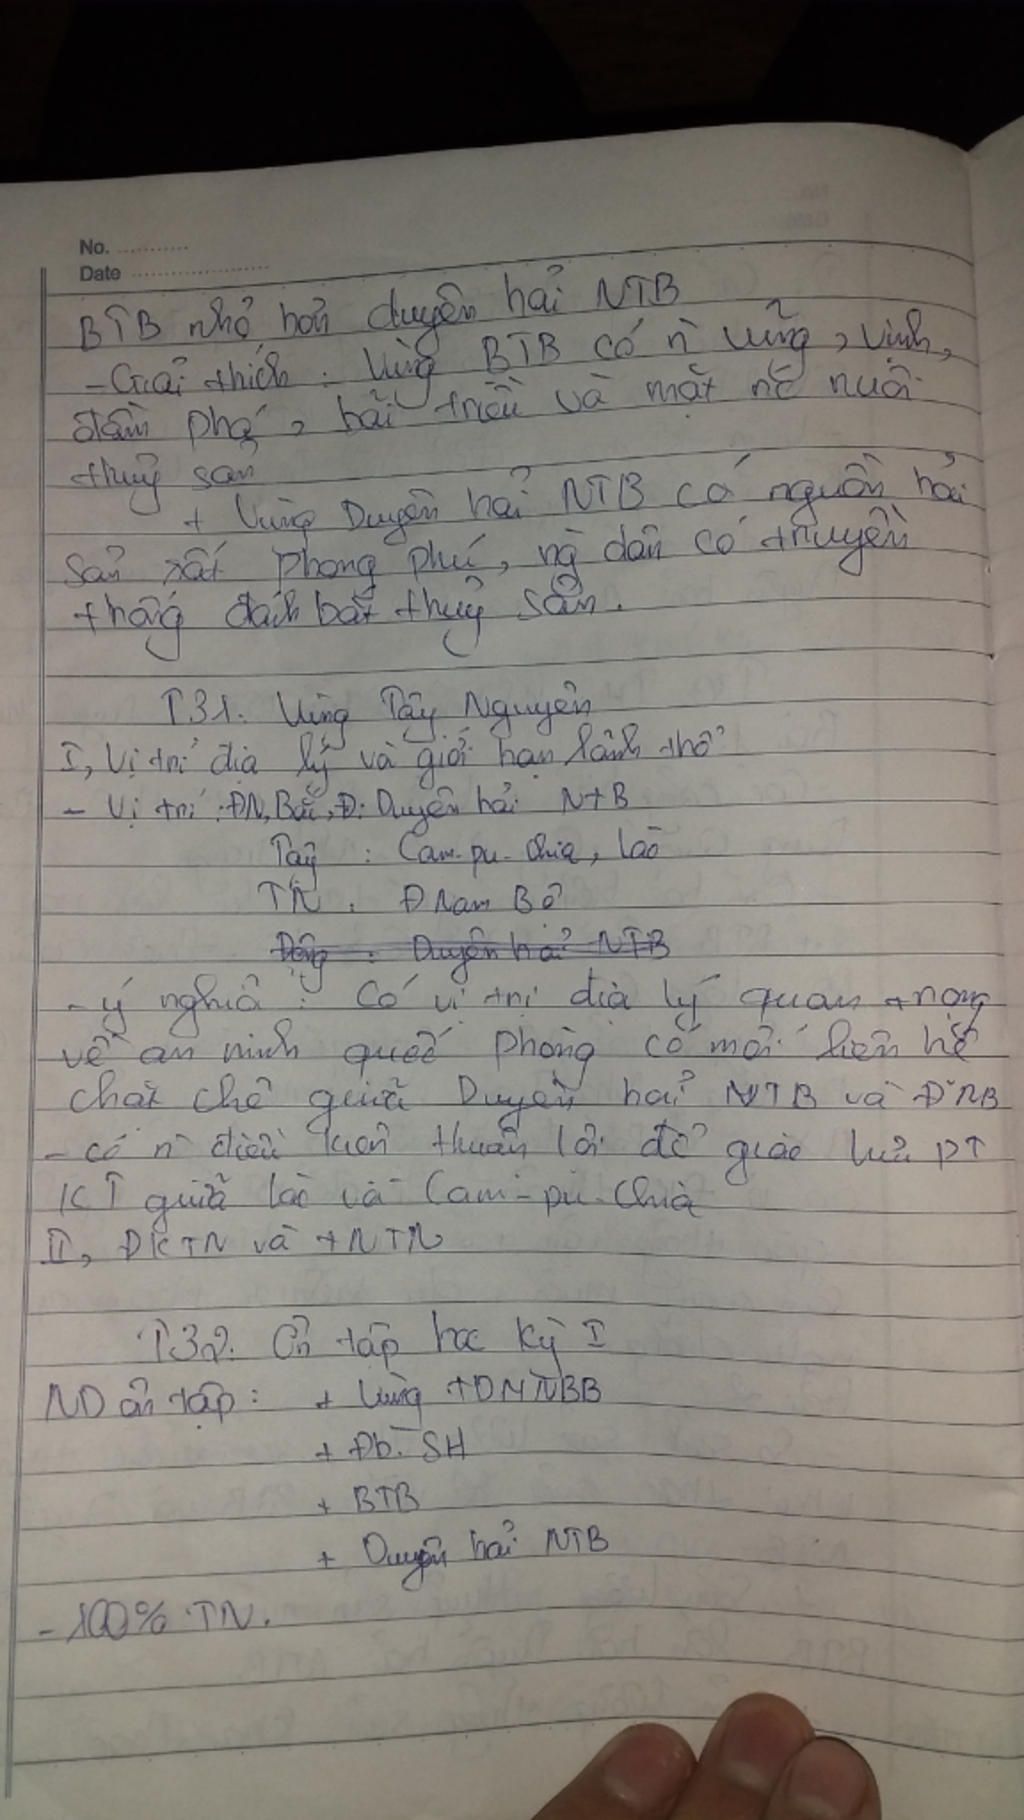 No. ............
Date .......................
BTB nhỏ hơn duyên hải NTB
- Giải thích : Vùng BTB có n` vũng, vịnh,
đầm phá, bãi triều và mặt nc nuôi
thuỷ sản
+ Vùng Duyên hải NTB có nguồn hải
sản rất phong phú, ng dân có truyền
thống đánh bắt thuỷ sản.
T31. Vùng Tây Nguyên
I, Vị trí địa lý và giới hạn lãnh thổ
- Vị trí : ĐN, Bắc, Đ: Duyên hải NTB
Tây : Cam-pu-chia, Lào
TN : Đ Nam Bộ
Đông : Duyên hải NTB
- ý nghĩa : Có vị trí địa lý quan trọng
về an ninh quốc phòng có mối liên hệ
chặt chẽ giữa Duyên hải NTB và ĐNB
- có n` điều kiện thuận lợi để giao lưu PT
KT giữa Lào và Cam-pu-chia
II, ĐKTN và TNTN
T32. Ôn tập học kỳ I
ND ôn tập : + Vùng TDMNBB
+ Đb. SH
+ BTB
+ Duyên hải NTB
- 100% TN.